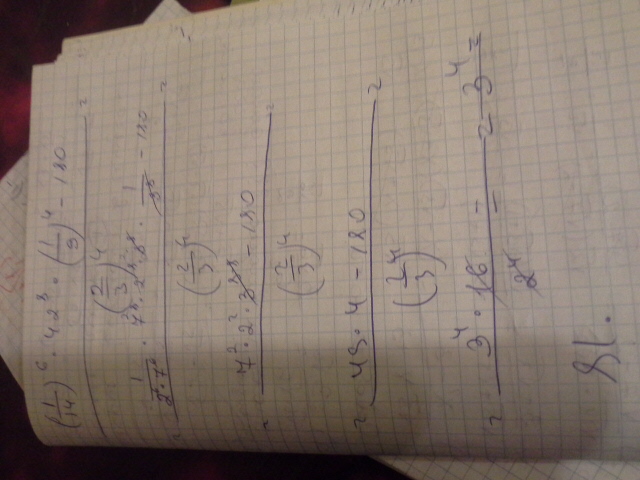 (1/14)^6 · 42^8 · (1/9)^4 - 180 =
(2/3)^4
= 1/(2^6·7^6) · 7^8·2^8·3^8 · 1/3^8 - 180 =
(2/3)^4
= 7^2·2^2·3^8 - 180 =
(2/3)^4
= 49·4 - 180 =
(2/3)^4
= 3^4·16 = 3^4 =
2^4
81.